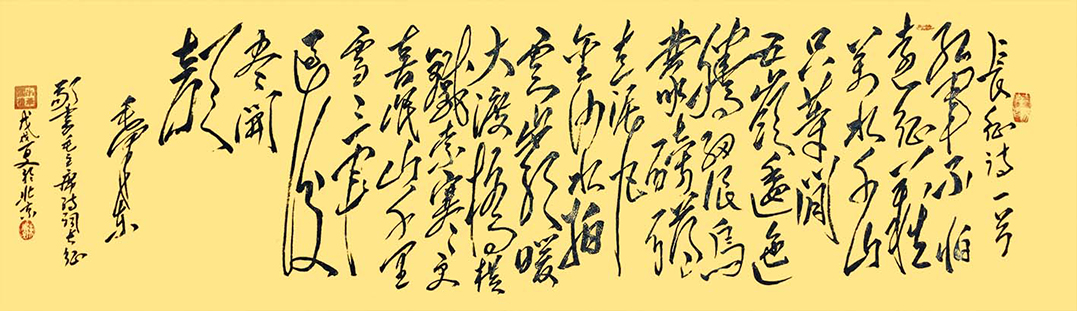 長征詩一首
紅軍不怕
遠征難
萬水千山
只等閒
五嶺逶迤
騰細浪烏
蒙磅礴
走泥丸
金沙水拍
雲崖暖
大渡橋橫
鐵索寒更
喜岷山千里
雪三軍
過後
盡開
顏
毛澤東
敬書毛主席詩詞長征
戊戌夏於北京